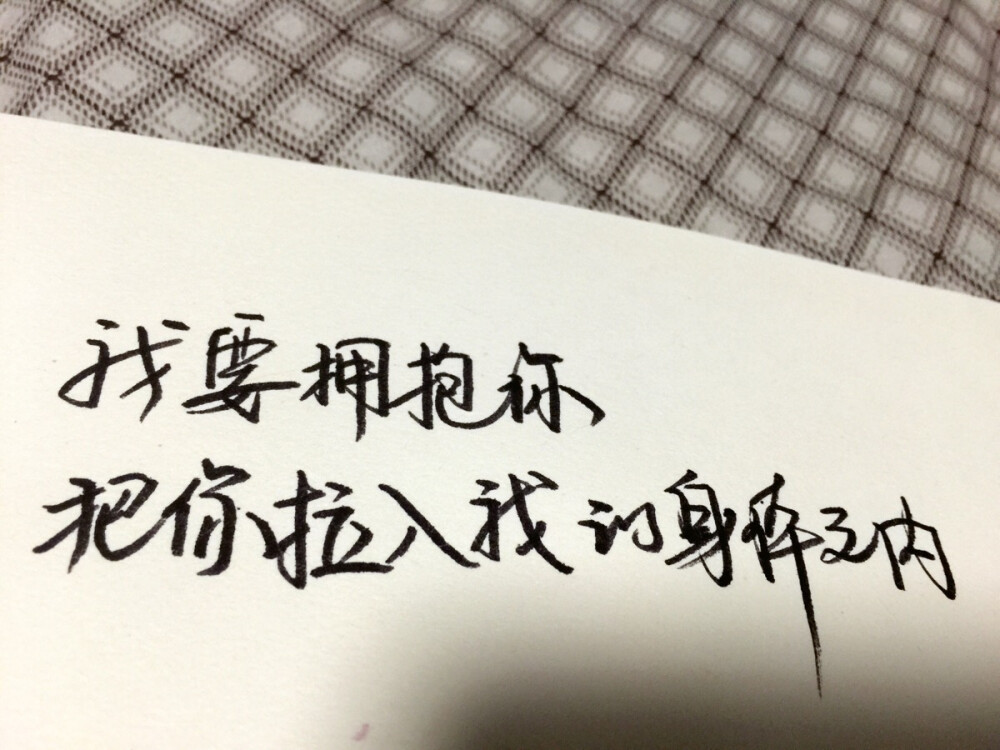 我要拥抱你
把你拉入我的身体之内